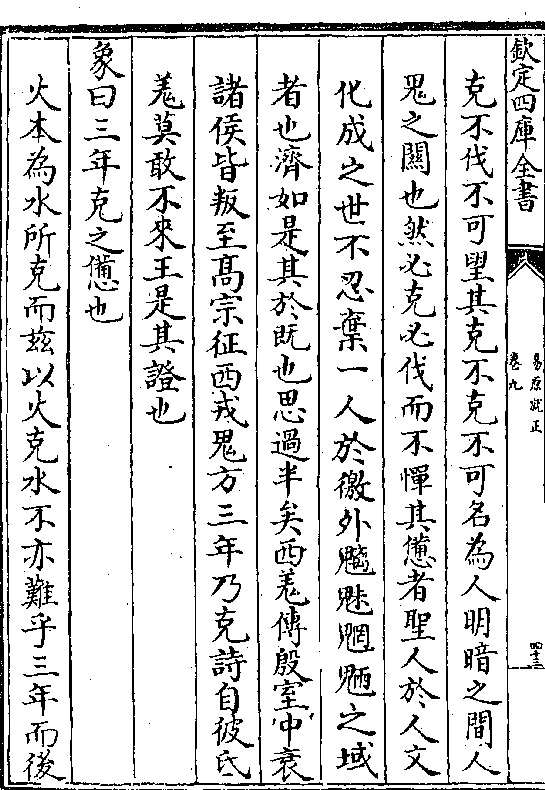 欽定四庫全書
易原就正
卷九
四十三
克不伐不可望其克不克不可名為人明暗之間人
鬼之關也然必克必伐而不憚其憊者聖人於人文
化成之世不忍棄一人於徼外魑魅魍魎之域
者也濟如是其於既也思過半矣西羗傳殷室中衰
諸侯皆叛至髙宗征西戎鬼方三年乃克詩自彼氐
羗莫敢不來王是其證也
象曰三年克之憊也
火本為水所克而兹以火克水不亦難乎三年而後